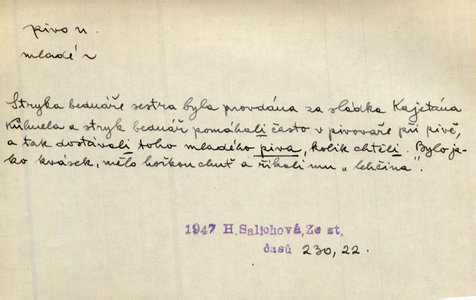 pivo n.
mladé ~
Stryka bednáře sestra byla provdána za sládka Kajetána
Kühnela a stryk bednář pomáhali často v pivovaře při pivě,
a tak dostávali toho mladého piva, kolik chtěli. Bylo ja-
ko kvásek, mělo hořkou chuť a říkali mu „lehčina".
1947 H. Salichová, Ze st.
časů 230, 22.